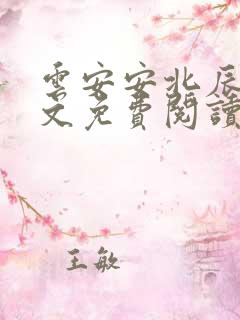 雲安安北辰
文免費閱讀
王敏